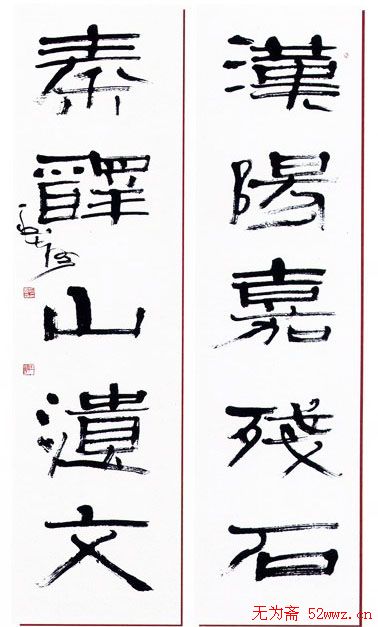 漢陽嘉殘石
秦醳山遺文
无为斋 52wwz.cn